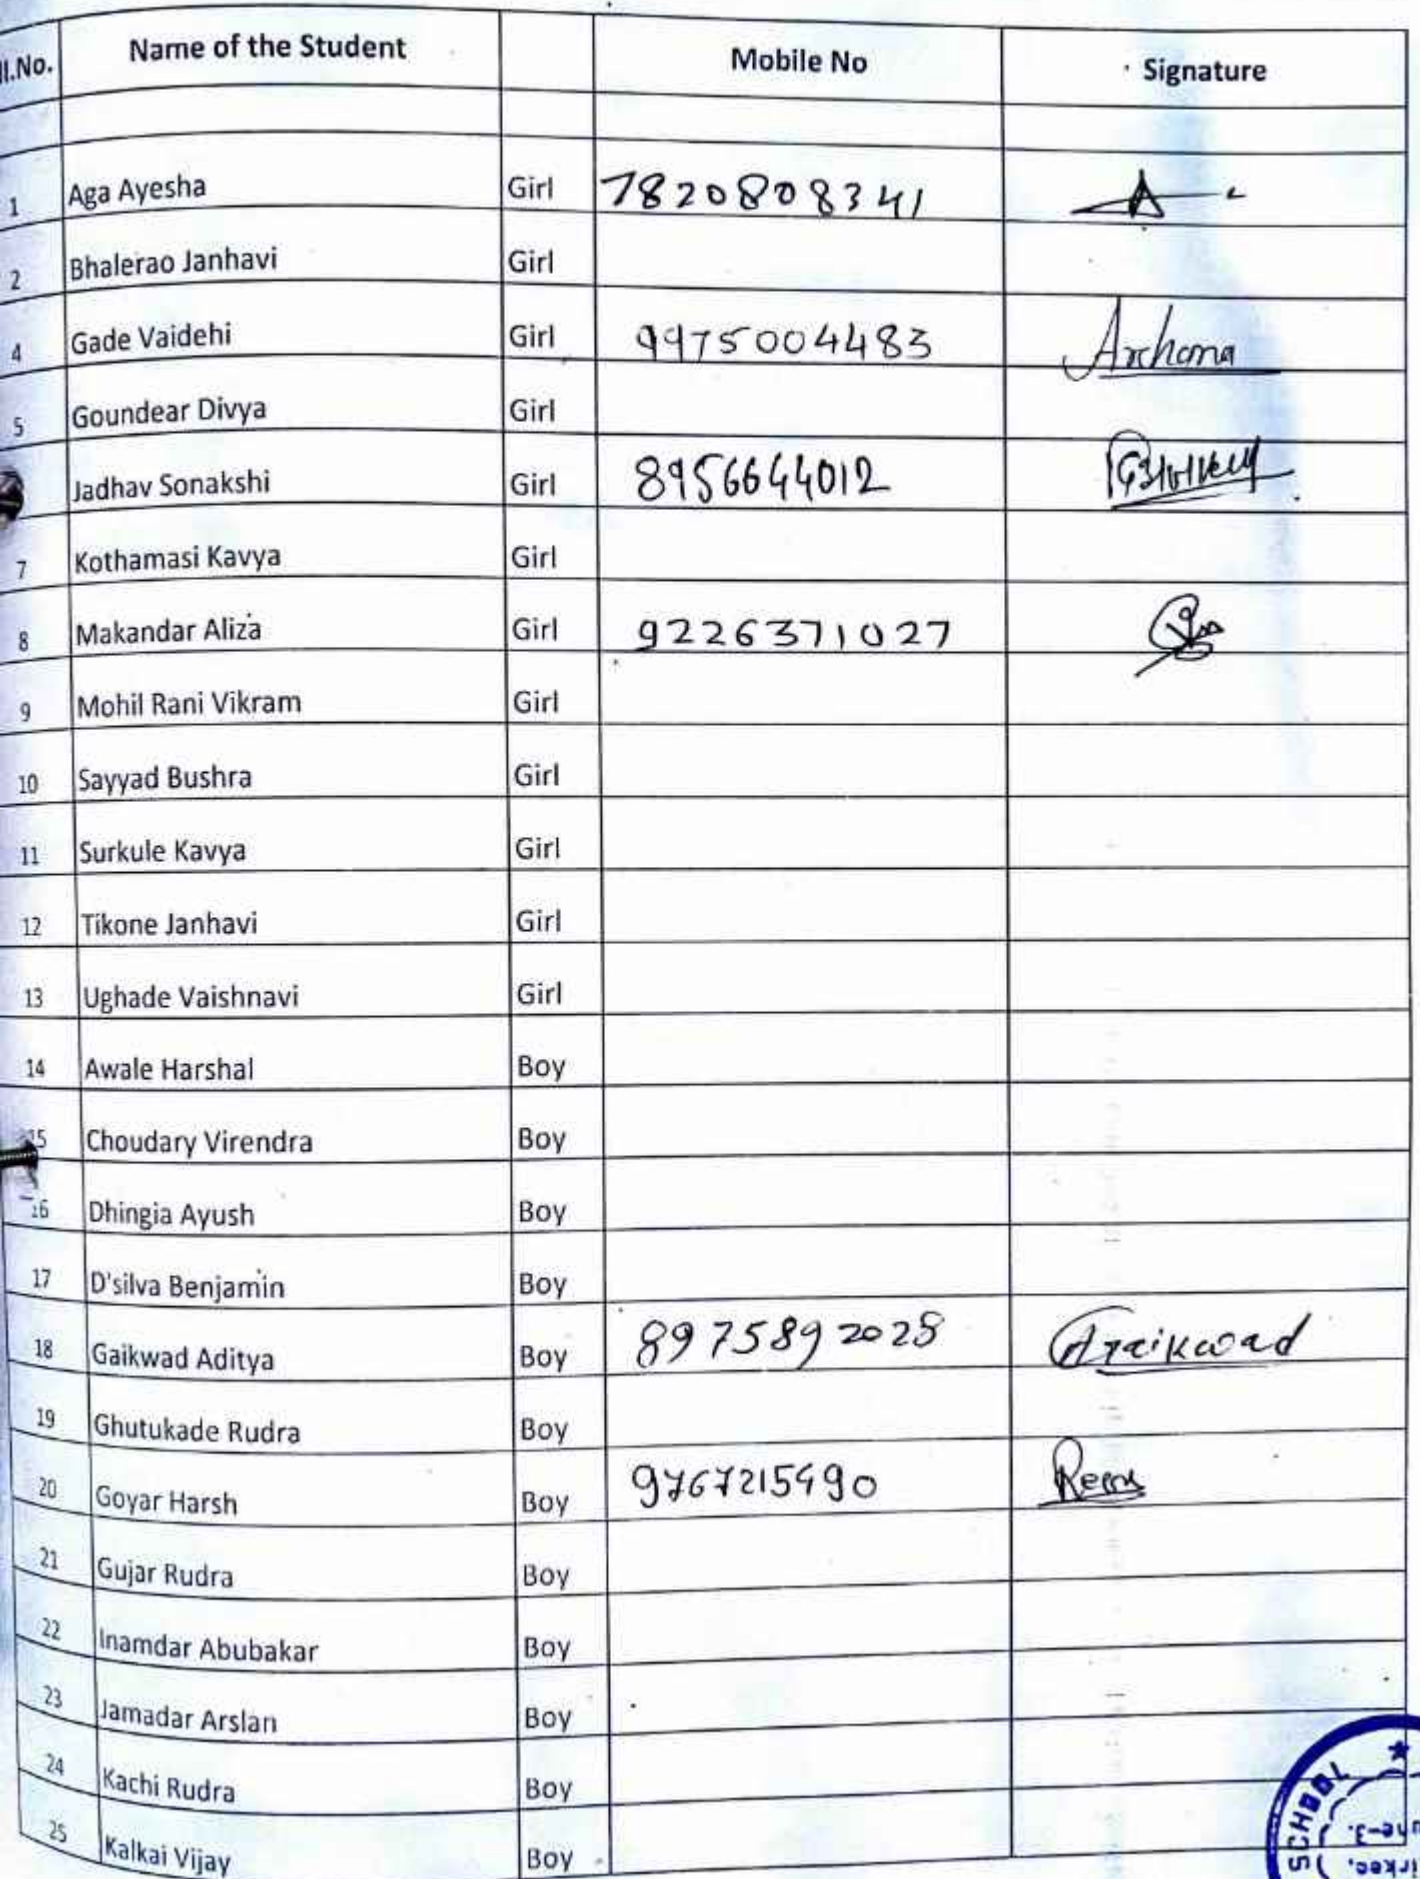 ll.No. Name of the Student Mobile No Signature
1 Aga Ayesha Girl 7820808341
2 Bhalerao Janhavi Girl
4 Gade Vaidehi Girl 9975004483 Archana
5 Goundear Divya Girl
Jadhav Sonakshi Girl 8956644012
7 Kothamasi Kavya Girl
8 Makandar Aliza Girl 9226371027
9 Mohil Rani Vikram Girl
10 Sayyad Bushra Girl
11 Surkule Kavya Girl
12 Tikone Janhavi Girl
13 Ughade Vaishnavi Girl
14 Awale Harshal Boy
15 Choudary Virendra Boy
16 Dhingia Ayush Boy
17 D'silva Benjamin Boy
18 Gaikwad Aditya Boy 8975892028 AGaikwad
19 Ghutukade Rudra Boy
20 Goyar Harsh Boy 9767215490
21 Gujar Rudra Boy
22 Inamdar Abubakar Boy
23 Jamadar Arslan Boy
24 Kachi Rudra Boy
25 Kalkai Vijay Boy
SCHOOL
une-3.
irkee,